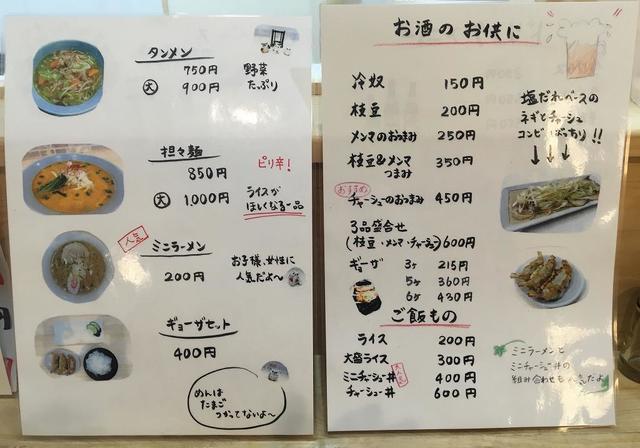 タンメン
750円
大 900円
野菜
たっぷり
担々麺
850円
大 1,000円
ピリ辛!
ライスが
ほしくなる一品
人気
ミニラーメン
200円
お子様、女性に
人気だよ〜
ギョーザセット
400円
めんは
たまご
つかってないよ〜
お酒のお供に
冷奴 150円
枝豆 200円
メンマのおつまみ 250円
枝豆&メンマ
つまみ 350円
おすすめ
チャーシューのおつまみ 450円
3品盛合せ
(枝豆・メンマ・チャーシュー) 600円
ギョーザ 3ケ 215円
5ケ 360円
6ケ 430円
塩だれベースの
ネギとチャーシュー
コンビばっちり!!
↓↓↓
ご飯もの
ライス 200円
大盛ライス 300円
ミニチャーシュー丼 400円
大人気
チャーシュー丼 600円
ミニラーメンと
ミニチャーシュー丼の
組み合わせも人気だよ